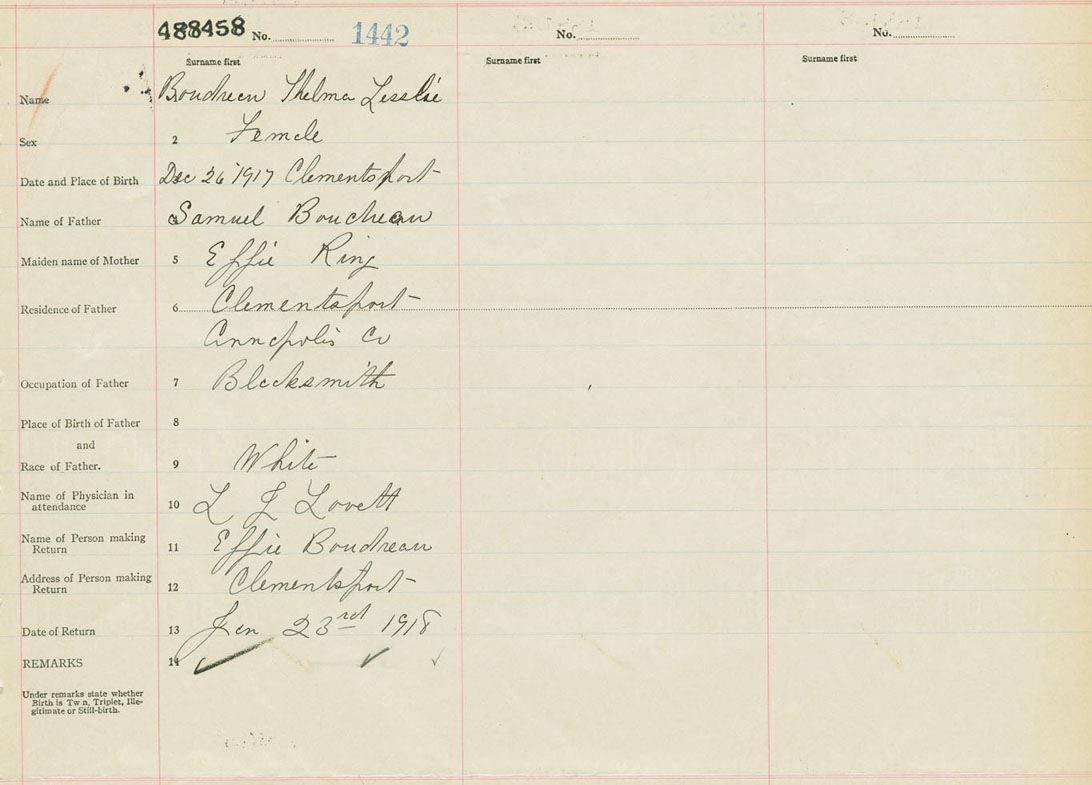 488458 No. 1442 No. No.
Surname first Surname first Surname first
Name Boudreau Thelma Lesslie
Sex 2 Female
Date and Place of Birth Dec 26 1917 Clementsport
Name of Father Samuel Boudreau
Maiden name of Mother 5 Effie Ring
Residence of Father 6 Clementsport
Annapolis Co
Occupation of Father 7 Blacksmith
Place of Birth of Father 8
and
Race of Father. 9 White
Name of Physician in
attendance 10 L J Lovett
Name of Person making
Return 11 Effie Boudreau
Address of Person making
Return 12 Clementsport
Date of Return 13 Jan 23rd 1918
REMARKS 14
Under remarks state whether
Birth is Twin, Triplet, Ille-
gitimate or Still-birth.